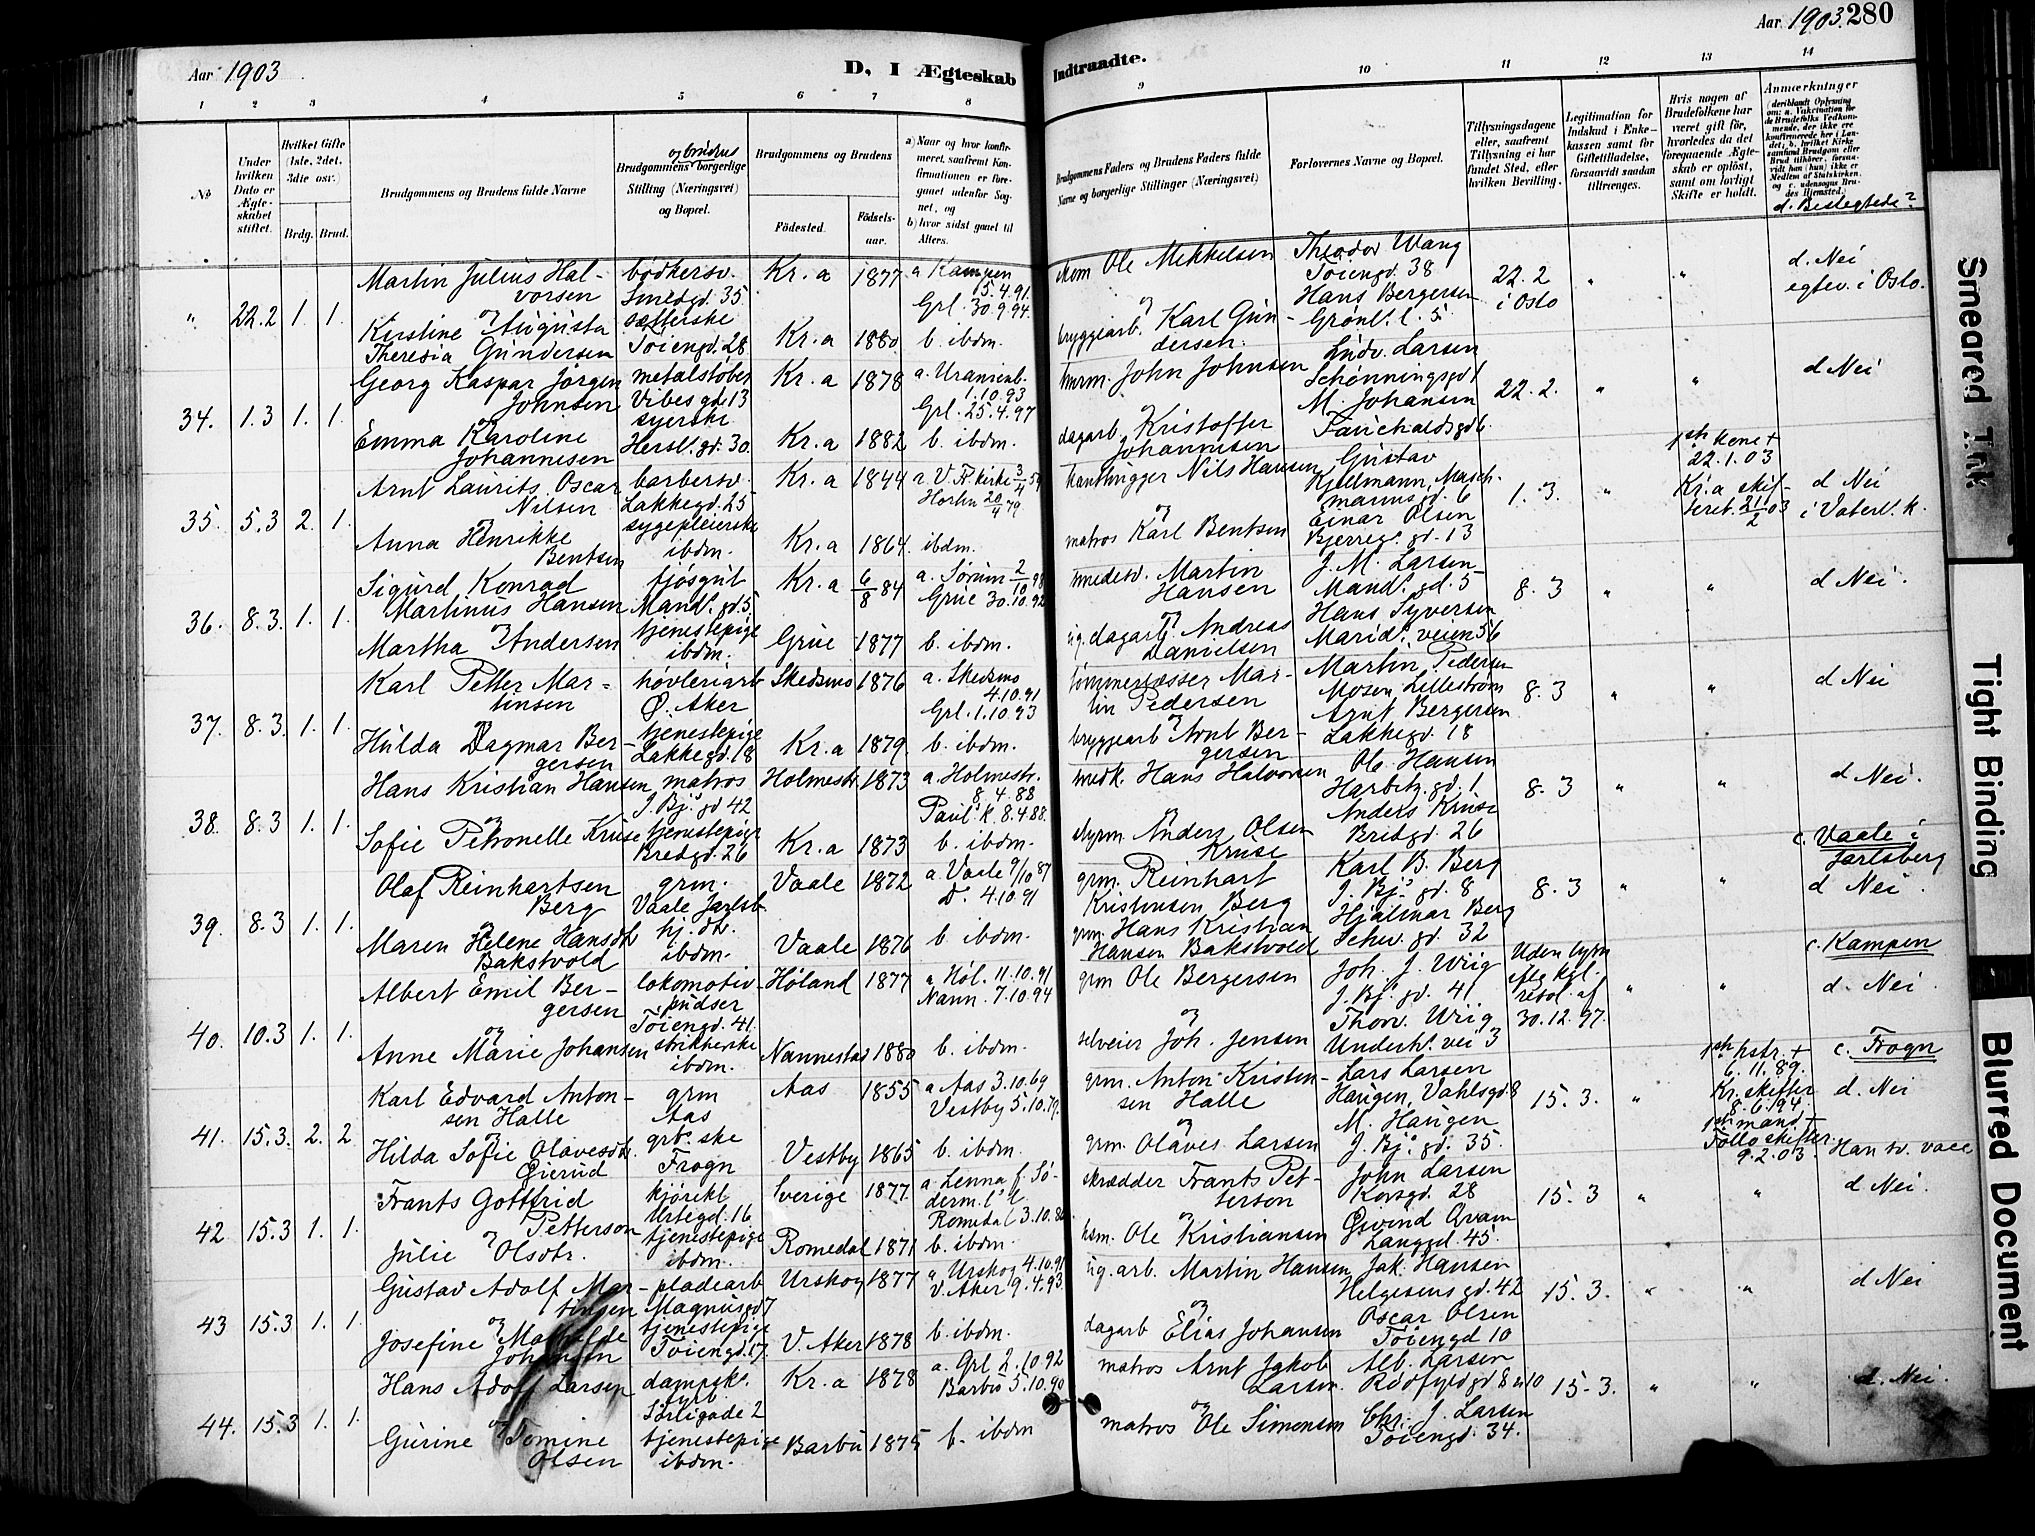 Aar 1903.
D, I Ægteskab
Indtraadte.
Aar 1903. 280
1 2 3 4 5 6 7 8
9 10 11 12 13 14
No
Under hvilken Dato er Ægteskabet stiftet.
Hvilket Gifte (1ste, 2det, 3die osv.)
Brdg. Brud.
Brudgommens og Brudens fulde Navne
og brudens
Brudgommens borgerlige Stilling (Næringsvei) og Bopæl.
Brudgommens og Brudens
Födested.
Födselsaar.
a) Naar og hvor konfirmeret, saafremt Konfirmationen er foregaaet udenfor Sognet, og
b) hvor sidst gaaet til Alters.
Brudgommens Faders og Brudens Faders fulde Navne og borgerlige Stillinger (Næringsvei)
Forlovernes Navne og Bopæl.
Tillysningsdagene eller, saafremt Tillysning ei har fundet Sted, efter hvilken Bevilling.
Legitimation for Indskud i Enkekassen samt for Giftetilladelse, forsaavidt saadan tiltrænges.
Hvis nogen af Brudefolkene har været gift för, hvorledes da det foregaaende Ægteskab er oplöst, samt om lovligt Skifte er holdt.
Anmærkninger
(deriblandt Oplysning om: a. Vakcination for de Brudefolks Vedkommende, der ikke ere konfirmerede her i Landet; b. hvilket Kirkesamfund Brudgom eller Brud tilhörer, forsaavidt han (hun) ikke er Medlem af Statskirken, og c. udensogns Brudes Hjemsted.)
d. Beslegtede?
" 22.2 1. 1.
Martin Julius Halvorsen
bödkersv. Smedgd. 35.
Kr.a 1877
a Kampen 15.4.91.
Grl. 30.9.94.
Ole Mikkelsen
Theodor Wang
Töiengd. 38
22.2 i Oslo
" "
d. Nei
egtev. i Oslo.
og
Kirstine Augusta Theresia Gundersen
Töiengd. 28
Kr.a 1880. b. ibdm.
bryggearb. Karl Gundersen.
Hans Bergersen
Grönl. l. 5
34. 1.3 1. 1.
Georg Kaspar Jörgen Johnsen
metalstöber
Vibes gd. 13
Kr.a 1878
a. Uranienb. 1.10.93
Grl. 25.4.97
John Johnsen
Ludv. Larsen
Schönningsgd 1
22.2. " "
d Nei
og
Emma Karoline Johannesen
syerske
Hersl. gd. 30.
Kr.a 1882 b. ibdm.
dagarb. Kristoffer Johannesen
M. Johansen
35. 5.3 2. 1.
Arnt Laurits Oscar Nilsen
barbersv.
Lakkegd. 25
Kr.a 1844
a. V. Fr. kirke
Horten 20/4 79
Nils Hansen
Gustav Hjellmann, Maschmanns gd. 6
1.3. "
1ste kone + 22.1.03
Kr.a skifteret. 21/2 03
d Nei
i Vaterl. k.
og
Anna Henrikke Bentsen
sygepleierske ibdm.
Kr.a 1864. ibdm.
matros Karl Bentsen
Einar Olsen
Bjerreg. gd. 13
36. 8.3. 1. 1.
Sigurd Konrad Martinus Hansen
Mandl. gd. 5
Kr.a 6/8 84
a. Sörum 2/10 98
Grue 30.10.92
smedesv. Martin Hansen
J. M. Larsen
Mandl. gd. 5
8.3 " "
d Nei.
og
Martha Andersen
tjenestepige ibdm.
Grue 1877 b. ibdm.
ug. dagarb. Andreas Danielsen
Hans Syversen
Marid. veien 56
37. 8.3. 1. 1.
Karl Petter Martinsen
hövleriarb
Ö. Aker
Skedsmo 1876
a. Skedsmo 4.10.91
Grl. 1.10.93
tömmerlæsser Martin Pedersen
Martin Pedersen
Mosen, Lilleström
8.3 " "
d Nei
og
Hulda Dagmar Bergersen
tjenestepige
Lakkegd. 18
Kr.a 1879. b. ibdm.
bryggearb Arnt Bergersen
Arnt Bergersen
Lakkegd. 18
38. 8.3 1. 1.
Hans Kristian Hansen
matros
J. Bj. gd 42
Holmestr. 1873
a. Holmestr. 8.4.88
Paul. k. 8.4 88.
smedk. Hans Halvorsen
Ol. Hansen
Harbitz gd. 1
8.3 " "
d Nei.
og
Sofie Petronelle Kruse
tjenestepige
Bredgd. 26
Kr.a 1873 b. ibdm.
styrm. Anders Olsen Kruse
Anders Kruse
Bredgd. 26
39. 8.3 1. 1.
Olaf Reinhartsen Berg
grm.
Vaale Jarlsb.
Vaale 1872
a. Vaale 9/10 87
Do. 4.10.91
grm. Reinhart Kristensen Berg
Karl B. Berg
J. Bj. gd. 8
8.3 " "
c. Vaale i Jarlsberg
d Nei.
og
Maren Helene Hansdt. Bakstvold
hj. dt. ibdm.
Vaale 1876 b ibdm.
grm. Hans Kristian Hansen Bakstvold
Hjalmar Berg
Schw. gd. 32
40. 10.3 1. 1.
Albert Emil Bergersen
lokomotivpudser
Töiengd. 41.
Höland 1877
a Höl. 11.10.91
Nann. 7.10.94
grm Ole Bergersen
Joh. J. Wiig
J. Bj. gd. 41
Uden lysn efter kgl. resol. af 30.12.97.
" "
c. Kampen
d. Nei.
og
Anne Marie Johansen
strikkerske ibdm.
Nannestad 1880 b. ibdm.
selveier Joh. Jensen
Thorv. Wiig
Underh. vei 3
41. 15.3. 2. 2
Karl Edvard Antonsen Halle
grm
Aas
Aas 1855
a Aas 3.10.69
Vestby 5.10.79.
grm. Anton Kristensen Halle
Lars Larsen
Haugen, Vahlsgd. 8
15.3. "
1ste hstr. + 6.11.89.
Kr. skifter 8.6.94.
1ste mand +
Follo skifter 9.2.03.
c. Frogn
d. Nei
Han sv. vacc
og
Hilda Sofie Olavesdt. Gierud
grb. ske
Frogn
Vestby 1865 b. ibdm.
grm. Olaves Larsen
M. Haugen
J. Bj. gd. 35.
42 15.3 1. 1.
Frants Gottfrid Petterson
kjörekl
Urtegd. 16
Sverige 1877.
a. Lenna f. Söderm. l.
Romedal 3.10.86
skrædder Frants Petterson
John Larsen
Korsgd. 28
15.3 " "
d Nei.
og
Julie Olsdtr.
tjenestepige ibdm.
Romedal 1871 b. ibdm.
hsm. Ole Kristiansen
Öivind Qvam
Langgd. 45.
43 15.3 1. 1.
Gustav Adolf Martinsen
pladearb
Magnusgd 7
Urskog 1877
a. Urskog 4.10.91
V. Aker 9.4.93
ug. arb. Martin Hansen
Jak. Hansen
Helgesens gd. 42
15.3. " "
d Nei
og
Josefine Mathilde Johansen
tjenestepige
Töiengd. 17
V. Aker 1878 b. ibdm.
dagarb Elias Johansen
Oscar Olsen
Töiengd 10
44. 15.3 1. 1.
Hans Adolf Larsen
dampsk. fyrb.
Sörligade 2
Kr.a 1878
a. Grl 2.10.92
Barbu 5.10.90
matros Arnt Jakob Larsen.
Alb. Larsen
Rödfyldgd 8 & 10
15.3. " "
d. Nei.
og
Gurine Tomine Olsen
tjenestepige ibdm.
Barbu 1875 b. ibdm
matros Ole Simonsen
Chr. J. Larsen
Töiengd. 34.
Smeared Ink
Tight Binding
Blurred Document